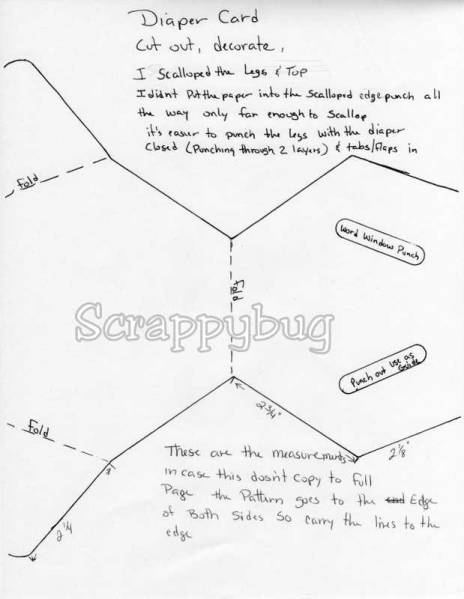 Diaper Card
Cut out, decorate,
I Scalloped the Legs & Top
I didnt Put the paper into the Scalloped edge punch all
the way only far enough to Scallop
it's easier to punch the legs with the diaper
closed (Punching through 2 layers) & tabs/flaps in
Fold
Word Window Punch
Fold
Scrappybug
Punch out use as
Guide
2 3/4"
Fold
2 1/8"
These are the measurements
in case this dosn't copy to full
Page the Pattern goes to the end Edge
of Both Sides So carry the lines to the
edge
2 1/4